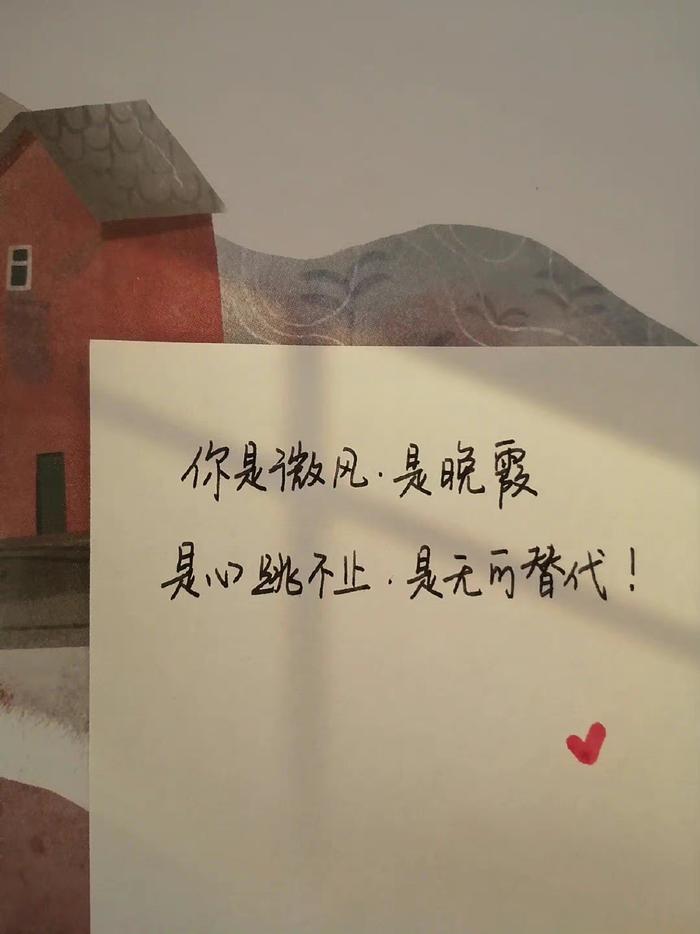 你是微风.是晚霞
是心跳不止.是无可替代!